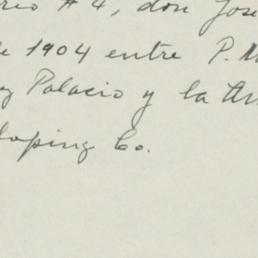 # 4, don José
de 1904 entre P. M
y Palacio y la Am
loping Co.